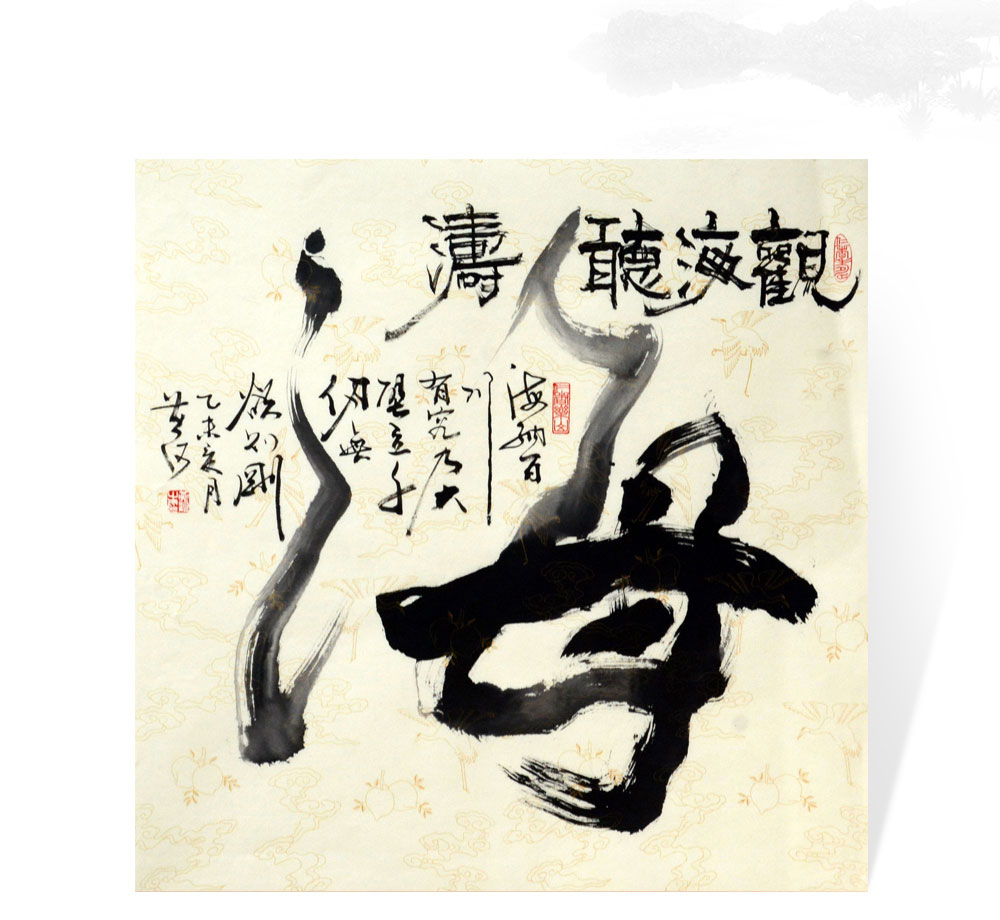 觀海聽濤
海
海納百
川
有容乃大
壁立千
仞無
欲則剛
乙未亥月